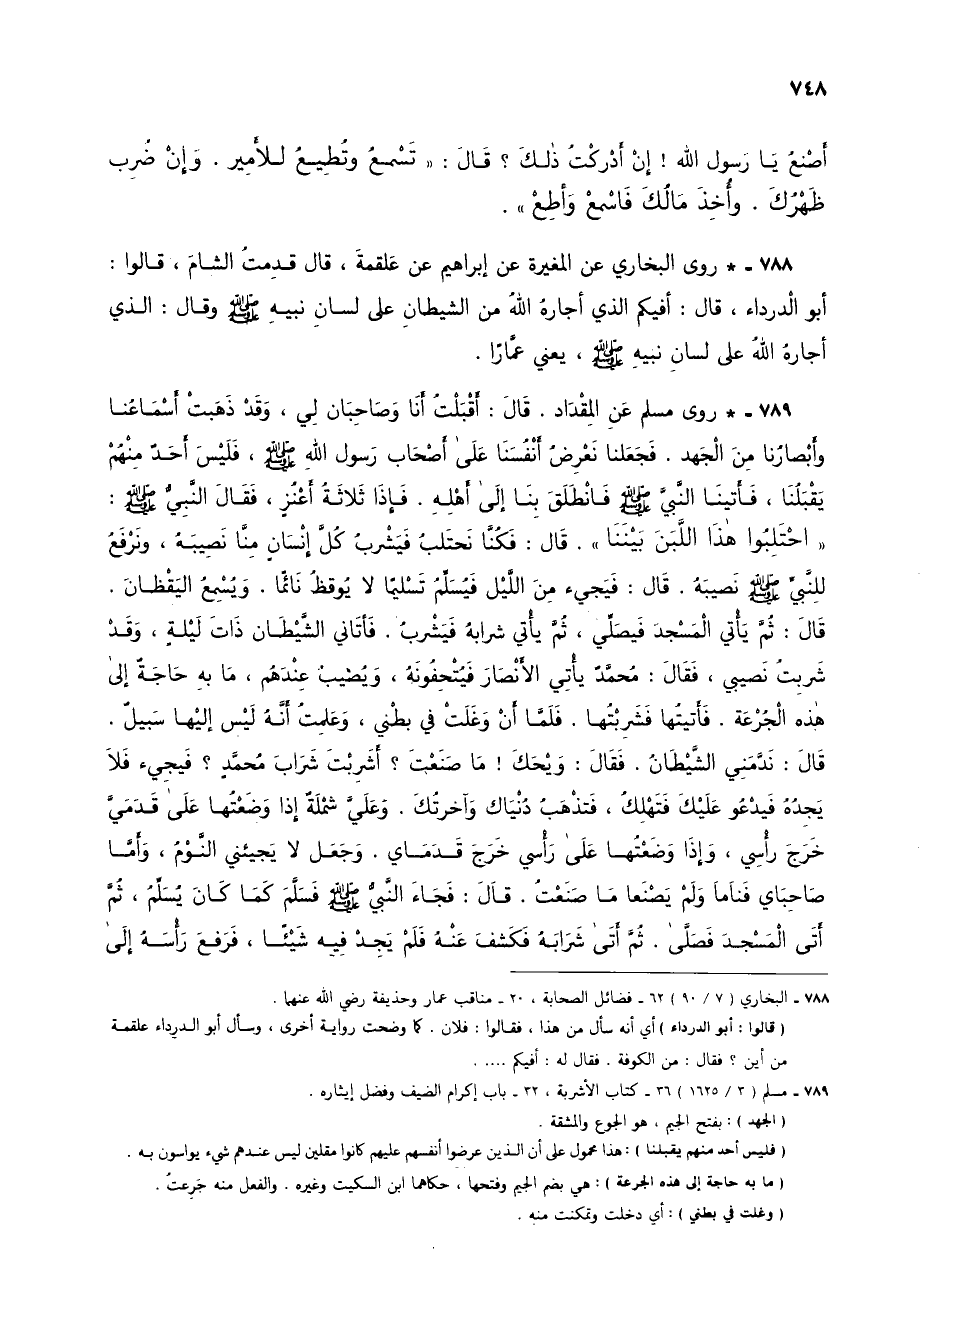 ٧٤٨
أَصْنَعُ يَا رَسول الله ! إِنْ أَدْرَكْتُ ذٰلِكَ ؟ قَالَ : « تَسْمَعُ وتُطِيعُ لِلأَمِير . وَإِنْ ضُرِب
ظَهْرُكَ . وأُخِذَ مَالُكَ فَاسْمِعْ وَأَطِعْ » .
٧٨٨ - * روى البخاري عن المغيرة عن إبراهيم عن عَلقمةَ ، قال قدِمتُ الشامَ ، قالوا :
أبو الْدرداء ، قال : أفيكم الذي أجارهُ اللهُ من الشيطانِ على لسانِ نبيهِ ﷺ وقال : الذي
أجارهُ اللهُ على لسانِ نبيهِ ﷺ ، يعني عمَّارًا .
٧٨٩ - * روى مسلم عَنِ المِقْدَاد . قَالَ : أَقْبَلْتُ أنَا وَصَاحِبَان لِي ، وَقَدْ ذَهَبتْ أَسْمَاعُنا
وأَبْصارُنا مِنَ الْجَهد . فَجَعلنا نَعْرِضُ أَنْفُسَنَا عَلَىٰ أَصْحَاب رَسول الله ﷺ ، فَلَيْسَ أَحَدٌ مِنْهُمْ
يَقْبَلُنَا ، فَأَتينَا النَّبيَّ ﷺ فَانْطَلَقَ بِنَا إلَىٰ أهْلِهِ . فَإِذَا ثَلاثَةُ أَعْنُزٍ ، فَقَالَ النَّبيُّ ﷺ :
« احْتَلِبُوا هٰذَا اللَّبَنَ بَيْنَنَا » . قَال : فَكُنَّا نَحتَلبُ فَيَشْربُ كُلَّ إِنْسَانٍ مِنَّا نَصيبَهُ ، ونَرْفَعُ
للِنَّبيِّ ﷺ نَصيبَهُ . قَال : فَيَجيءُ مِنَ اللَّيْل فَيُسَلِّمُ تَسْليمًا لا يُوقظُ نَائمًا . وَيُسْمِعُ اليَقْظَانَ .
قَالَ : ثُمَّ يَأْتي الْمَسْجدَ فَيصلِّي ، ثُمَّ يأْتي شَرابهُ فَيَشْربُ . فَأَتَاني الشَّيْطَان ذَاتَ لَيْلةٍ ، وَقَدْ
شَربتُ نَصيبي ، فَقَالَ : مُحمَّدٌ يأْتي الأَنْصَارَ فَيُتْحِفُونَهُ ، وَيُصيبُ عِنْدَهُم ، مَا بهِ حَاجَةٌ إلىٰ
هٰذه الْجُرْعَة . فَأَتيتُها فَشَرِبْتُها . فَلَمَّا أَنْ وَغَلَتْ في بطْني ، وَعَلمتُ أَنَّهُ لَيْس إليْها سَبيلٌ .
قَالَ : نَدَّمَني الشَّيْطانُ . فَقَالَ : وَيْحَكَ ! مَا صَنَعْتَ ؟ أَشَرِبْتَ شَرَابَ مُحمَّدٍ ؟ فَيجيء فَلاَ
يَجدُهُ فَيدْعُو عَلَيْكَ فَتَهْلِكُ ، فَتذْهَبُ دُنْيَاكَ وَآخرتُكَ . وَعَلَيَّ شَمْلَةٌ إذَا وَضَعْتُها عَلَىٰ قَدَمَيَّ
خَرَجَ رأْسي ، وَإذَا وَضَعْتُها عَلَىٰ رَأْسي خَرَجَ قَدمَاي . وَجَعل لا يَجيئني النَّوْمُ ، وَأَمَّا
صَاحِبَاي فَنامَا ولَمْ يَصْنَعا مَا صَنَعْتُ . قَالَ : فَجَاءَ النَّبيُّ ﷺ فَسَلَّمَ كَمَا كَانَ يُسَلِّمُ ، ثُمَّ
أَتَى الْمَسْجدَ فَصَلَّىٰ . ثُمَّ أَتَىٰ شَرَابَهُ فَكَشَف عَنْهُ فَلَمْ يَجِدْ فيِه شَيْئًا ، فَرَفعَ رَأْسَهُ إلَىٰ
٧٨٨ - البخاري ( ٧ / ٩٠ ) ٦٢ - فضائل الصحابة ، ٢٠ - مناقب عمار وحذيفة رضي الله عنهما .
( قالوا : أبو الدرداء ) أي أنه سأل من هذا ، فقالوا : فلان . كما وضحت رواية أخرى ، وسأل أبو الدرداء علقمة
من أين ؟ فقال : من الكوفة . فقال له : أفيكم ....
٧٨٩ - مسلم ( ٣ / ١٦٢٥ ) ٣٦ - كتاب الأشربة ، ٣٢ - باب إكرام الضيف وفضل إيثاره .
( الجهد ) : بفتح الجيم ، هو الجوع والمشقة .
( فليس أحد منهم يقبلنا ) : هذا محمول على أن الذين عرضوا أنفسهم عليهم كانوا مقلين ليس عندهم شيء يواسون به .
( ما به حاجة إلى هذه الجرعة ) : هي بضم الجيم وفتحها ، حكاهما ابن السكيت وغيره . والفعل منه جَرعتُ .
( وغلت في بطني ) : أي دخلت وتمكنت منه .